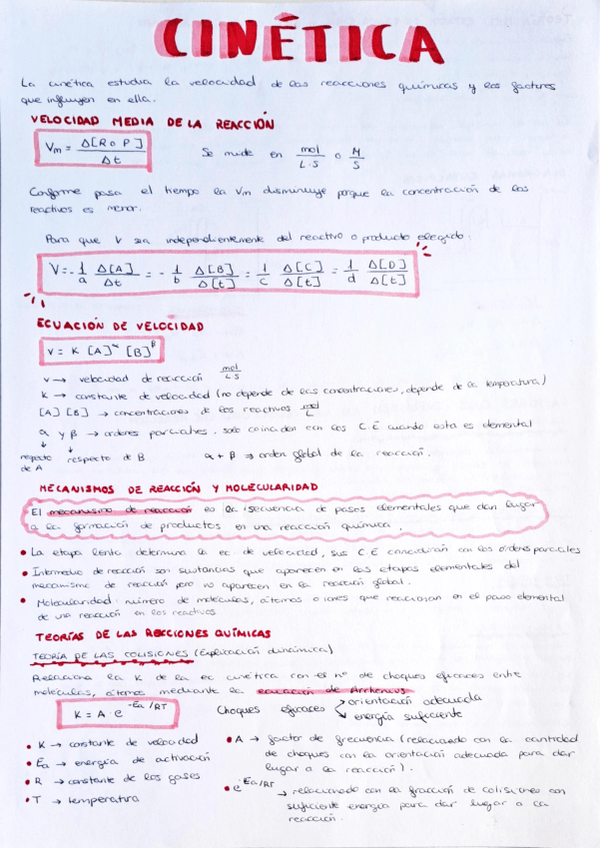 CINÉTICA
La cinética estudia la velocidad de las reacciones químicas y los factores
que influyen en ella.
VELOCIDAD MEDIA DE LA REACCIÓN
Vm = Δ[R o P] / Δt Se mide en mol/L·s o M/s
Conforme pasa el tiempo la Vm disminuye porque la concentración de los
reactivos es menor.
Para que V sea independientemente del reactivo o producto elegido:
V = - 1/a Δ[A]/Δt = - 1/b Δ[B]/Δ[t] = 1/c Δ[C]/Δ[t] = 1/d Δ[D]/Δ[t]
ECUACIÓN DE VELOCIDAD
v = K [A]^α [B]^β
v → velocidad de reacción mol/L·s
K → constante de velocidad (no depende de las concentraciones, depende de la temperatura)
[A] [B] → concentraciones de los reactivos mol/L
α y β → ordenes parciales. solo coinciden con los C.E cuando esta es elemental
↓ ↓
respecto respecto de B α + β ⇒ orden global de la reacción.
de A
MECANISMOS DE REACCIÓN Y MOLECULARIDAD
El mecanismo de reacción es la secuencia de pasos elementales que dan lugar
a la formación de productos en una reacción química.
• La etapa lenta determina la ec. de velocidad, sus C.E coincidirán con los órdenes parciales
• Intermedio de reacción son sustancias que aparecen en las etapas elementales del
mecanismo de reacción pero no aparecen en la reacción global.
• Molecularidad: número de moléculas, átomos o iones que reaccionan en el paso elemental
de una reacción en los reactivos
TEORÍAS DE LAS REACCIONES QUÍMICAS
TEORÍA DE LAS COLISIONES (Explicación dinámica)
Relaciona la K de la ec cinética con el nº de choques eficaces entre
moléculas, átomos mediante la ecuación de Arrhenius
K = A · e^-Ea/RT Choques eficaces → orientación adecuada
→ energía suficiente
• K → constante de velocidad
• Ea → energía de activación
• R → constante de los gases
• T → temperatura
• A → factor de frecuencia (relacionado con la cantidad
de choques con la orientación adecuada para dar
lugar a la reacción).
• e^-Ea/RT → relacionado con la fracción de colisiones con
suficiente energía para dar lugar a la
reacción.